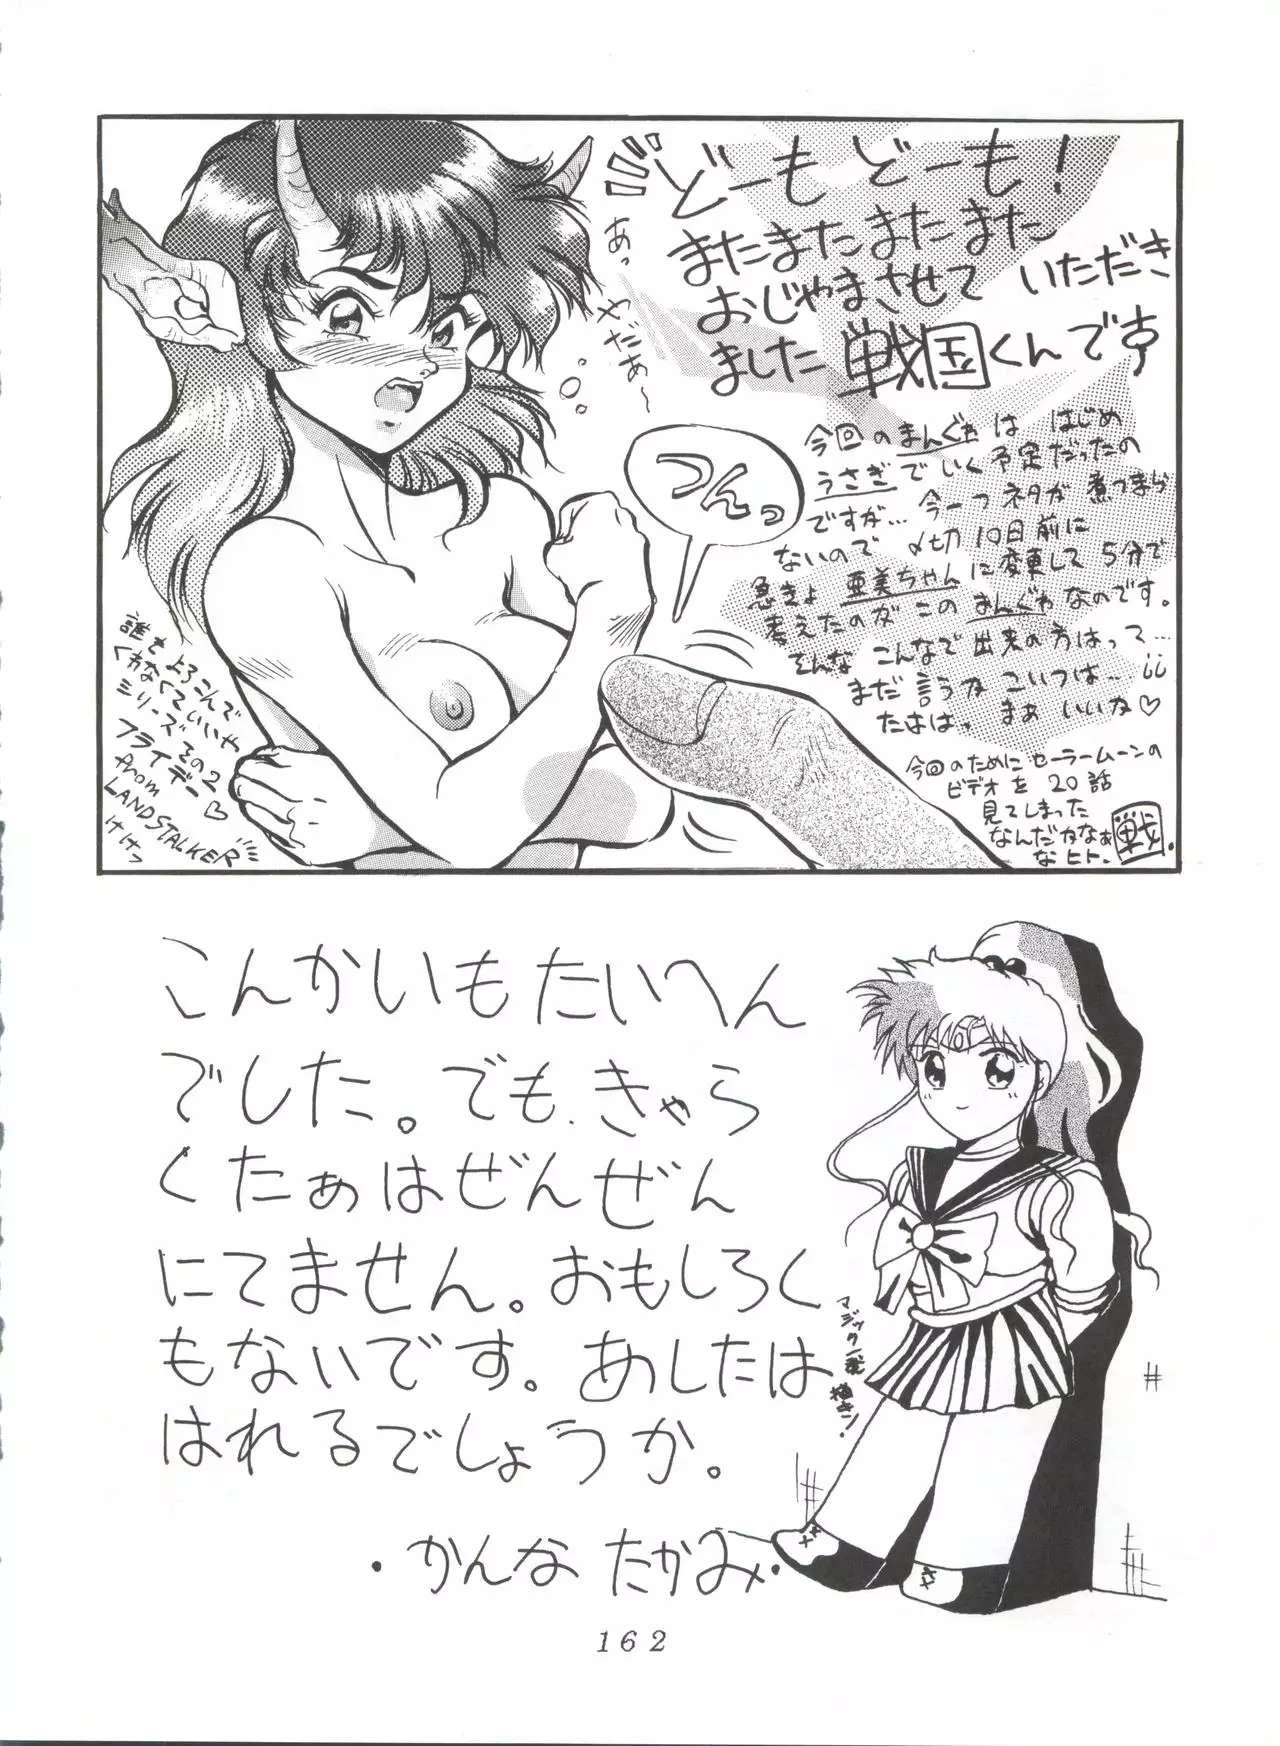 どーも どーも!
またまたまたまたまた
おじゃまさせて いただき
ました 戦国くんです
あっ
やだぁ〜
つんっ
今回のまんぐわは はじめ
うさぎでいく予定だったの
ですが… 今一つネタが煮つまら
ないので 〆切10日前に
急きょ 亜美ちゃんに変更して 5分で
考えたのが このまんぐわなのです。
そんな こんなで出来の方はって…
まだ 言うか こいつは…
たははっ まぁ いいか♡
今回のために セーラームーンの
ビデオを 20話
見てしまった
なんだかなぁ
なヒト。
戦
誰もよろこんで
くれなくていいや
シリーズ その2
フライデー♡
from
LANDSTALKER
けけっ
こんかいもたいへん
でした。でも、きゃら
くたぁはぜんぜん
にてません。おもしろく
もないです。あしたは
はれるでしょうか。
・かんな たかみ・
マジック一発
描きン!
162